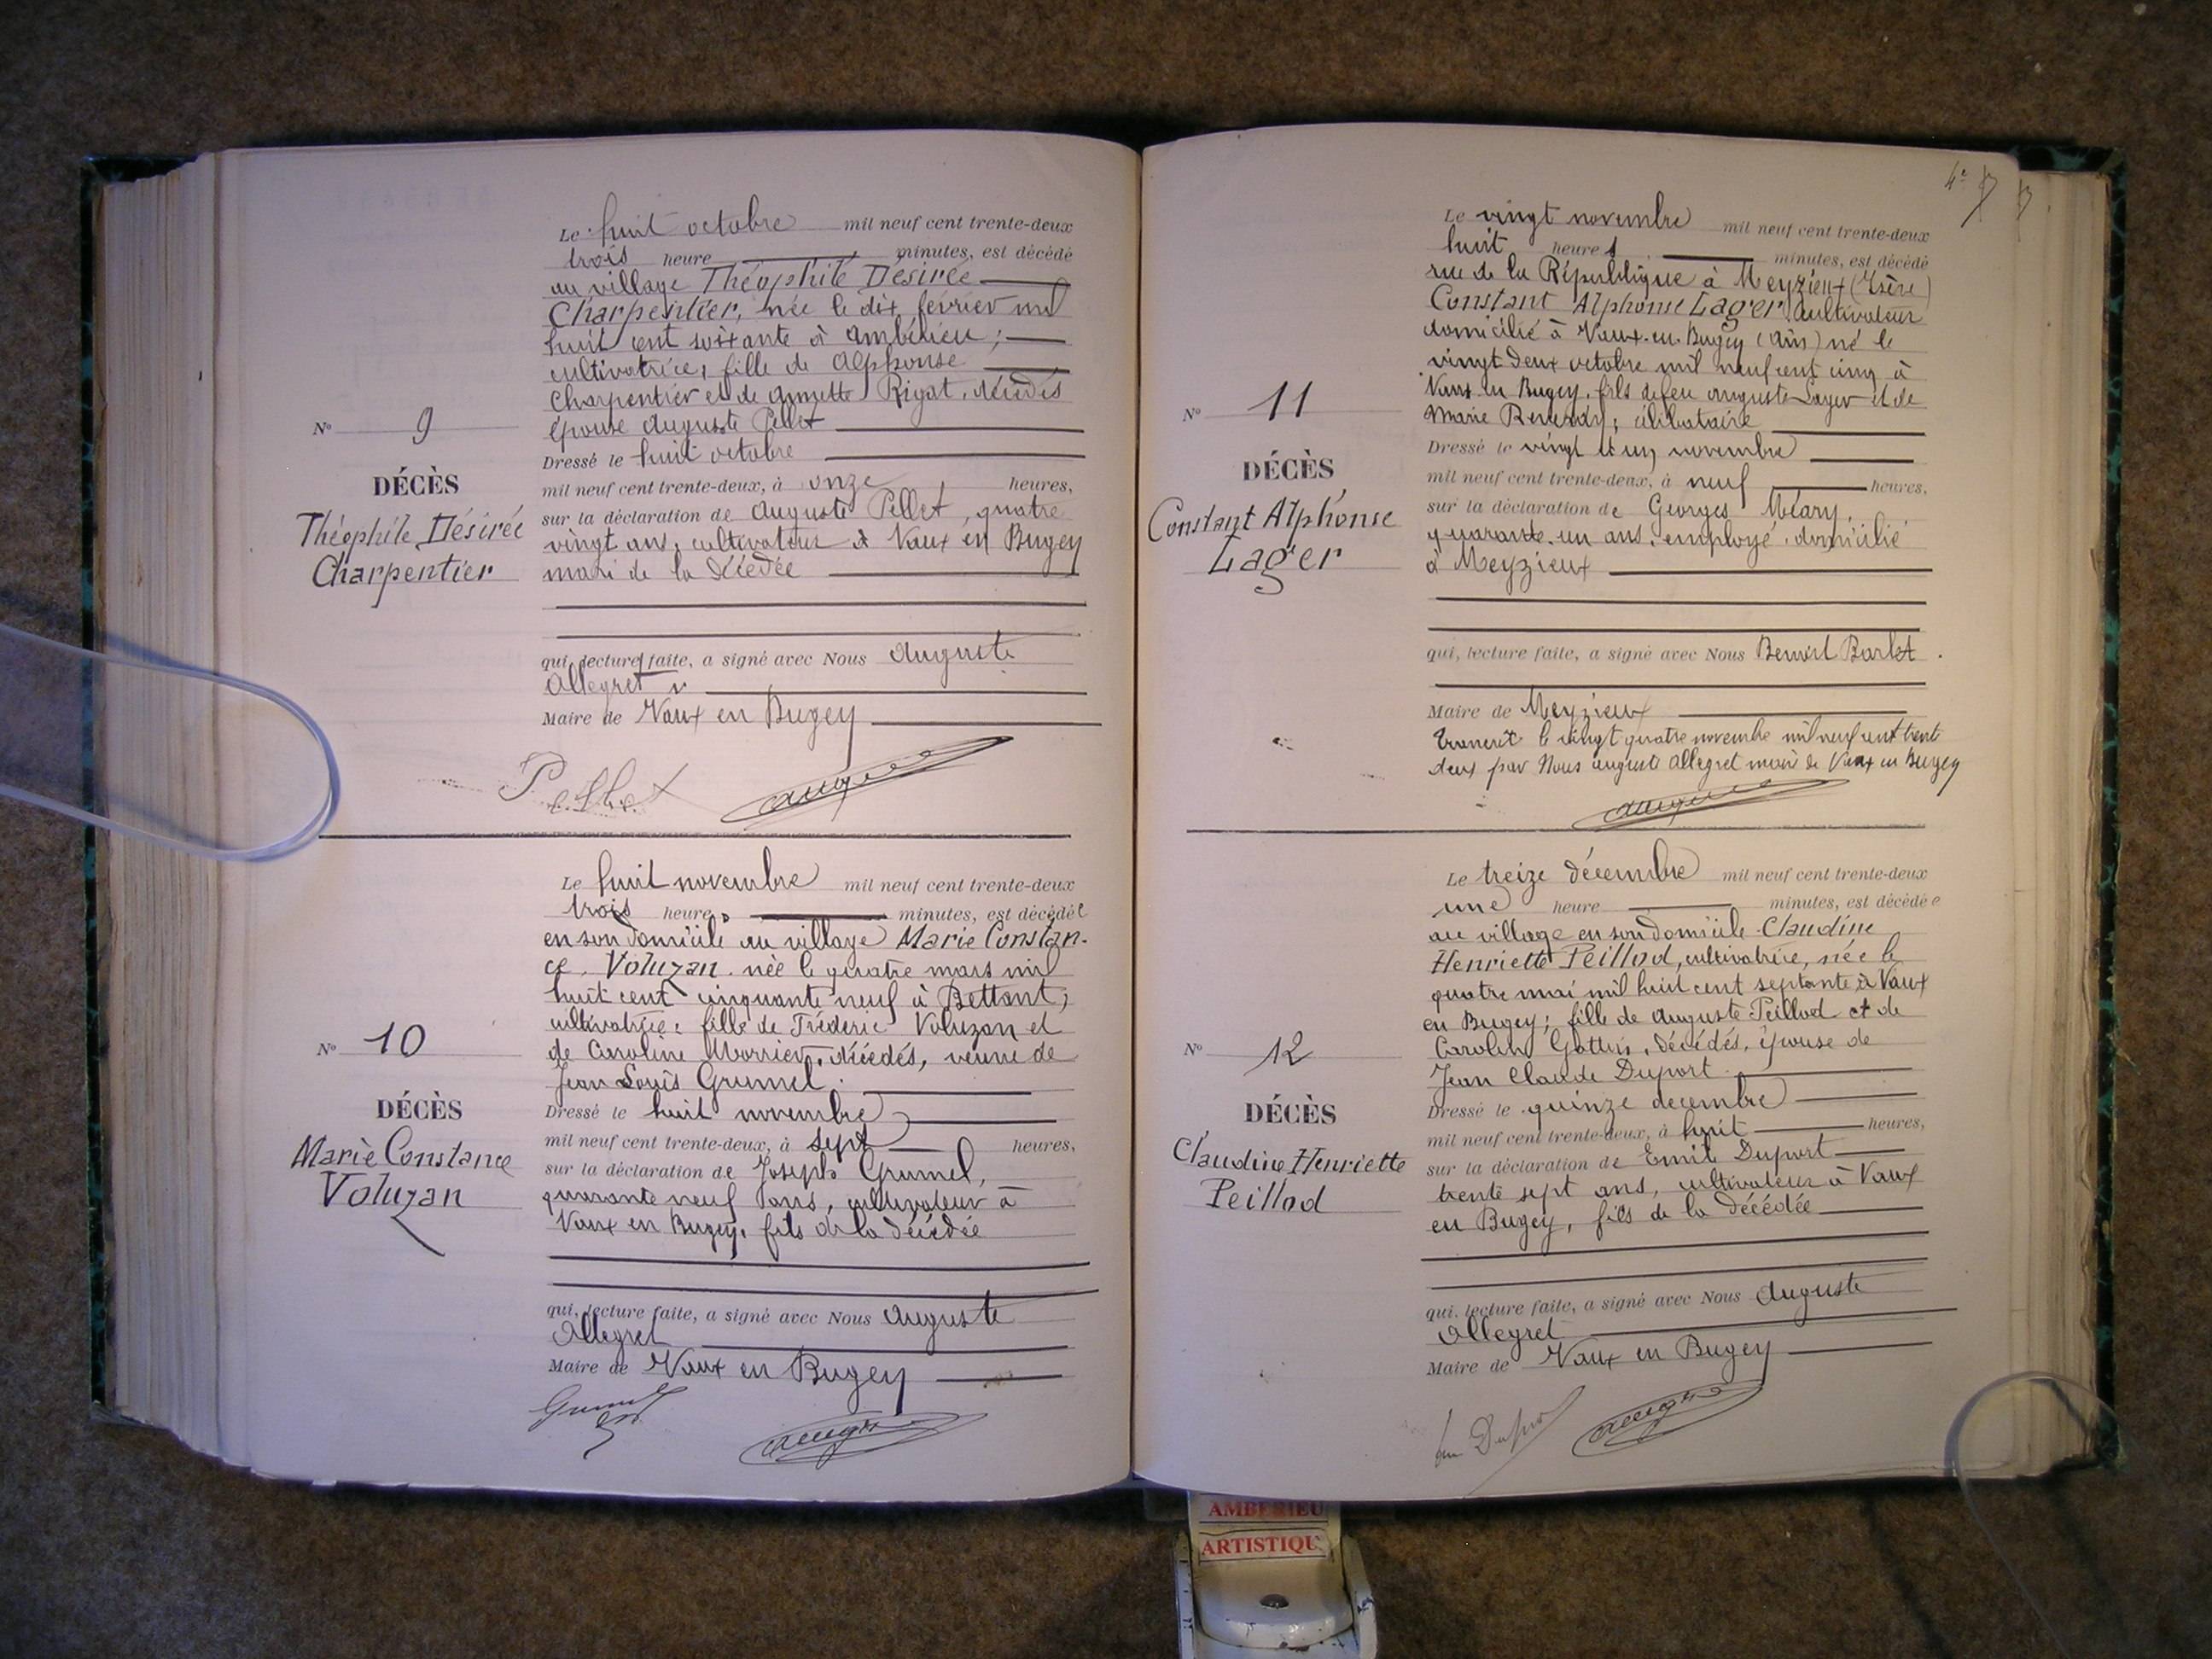 Le huit octobre mil neuf cent trente-deux
trois heure minutes, est décédé
au village Théophile Désirée
Charpentier, née le dix février mil
huit cent soixante à Ambérieu ;
cultivatrice, fille de Alphonse
Charpentier et de Annette Rigat, décédés
épouse Auguste Pellet
Nº 9
DÉCÈS
Théophile Désirée
Charpentier
Dressé le huit octobre
mil neuf cent trente-deux, à onze heures,
sur la déclaration de Auguste Pellet, quatre
vingt ans, cultivateur à Vaux en Bugey
mari de la décédée
qui, lecture faite, a signé avec Nous Auguste
Allegret
Maire de Vaux en Bugey
Pellet
Le huit novembre mil neuf cent trente-deux
trois heure minutes, est décédée
en son domicile au village Marie Constan-
ce Voluzan née le quatre mars mil
huit cent cinquante neuf à Bettant ;
cultivatrice, fille de Fréderic Voluzan et
de Caroline décédés, veuve de
Jean Louis Grumel.
Nº 10
DÉCÈS
Marie Constance
Voluzan
Dressé le huit novembre
mil neuf cent trente-deux, à sept heures,
sur la déclaration de Joseph Grumel,
quarante neuf ans, cultivateur à
Vaux en Bugey, fils de la décédée
qui, lecture faite, a signé avec Nous Auguste
Allegret
Maire de Vaux en Bugey
Grumel
Le vingt novembre mil neuf cent trente-deux
huit heures minutes, est décédé
rue de la République à Meyzieux (Isère)
Constant Alphonse Lager cultivateur
domicilié à Vaux-en-Bugey (Ain) né le
vingt deux octobre mil neuf cent cinq à
Vaux en Bugey, fils de feu Auguste Lager et de
Marie célibataire
Nº 11
DÉCÈS
Constant Alphonse
Lager
Dressé le vingt et un novembre
mil neuf cent trente-deux, à neuf heures,
sur la déclaration de Georges Méary,
quarante-un ans, employé, domicilié
à Meyzieux
qui, lecture faite, a signé avec Nous Benoit Barlet.
Maire de Meyzieux
Transcrit le vingt quatre novembre mil neuf cent trente
deux par Nous Auguste Allegret maire de Vaux en Bugey
Le treize décembre mil neuf cent trente-deux
une heure minutes, est décédée
au village en son domicile Claudine
Henriette Peillod, cultivatrice, née le
quatre mai mil huit cent septante à Vaux
en Bugey ; fille de Auguste Peillod et de
Caroline décédés, épouse de
Jean Claude Duport.
Nº 12
DÉCÈS
Claudine Henriette
Peillod
Dressé le quinze decembre
mil neuf cent trente-deux, à huit heures,
sur la déclaration de Emile Duport
trente sept ans, cultivateur à Vaux
en Bugey, fils de la décédée
qui, lecture faite, a signé avec Nous Auguste
Allegret
Maire de Vaux en Bugey
AMBERIEU
ARTISTIQU